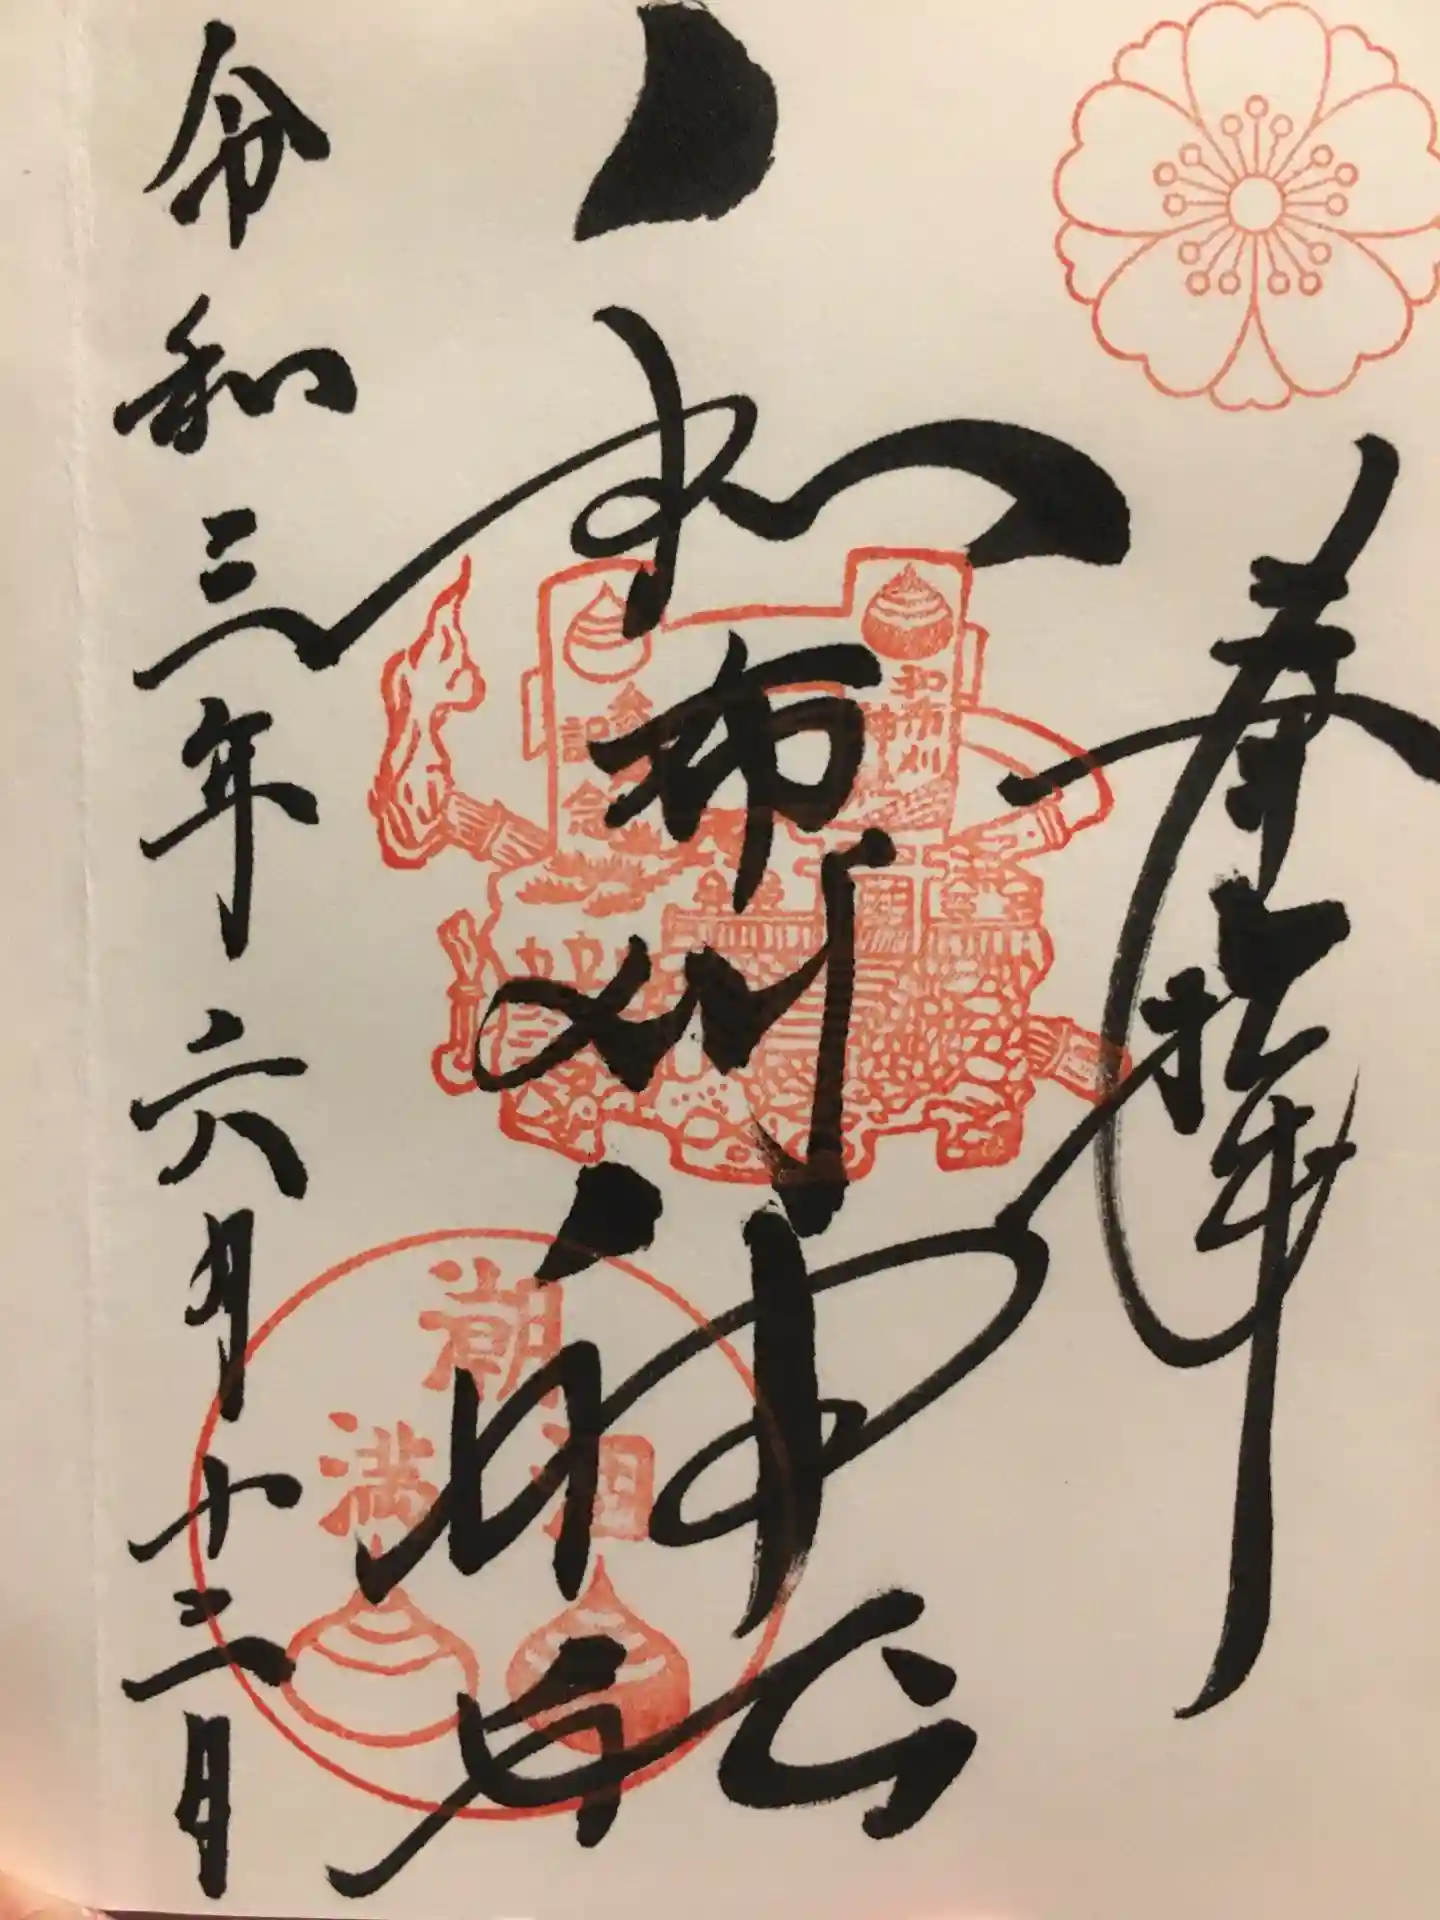 奉拝
和布刈神社
令和三年六月十三日
和布刈
神社
参
記念
潮
満
涸